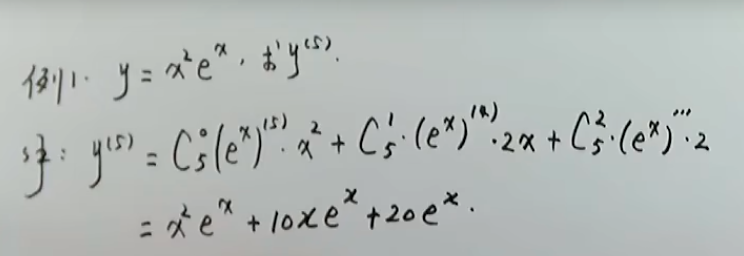 例1. y = x²eˣ, 求y⁽⁵⁾.
解: y⁽⁵⁾ = C₅⁰(eˣ)⁽⁵⁾·x² + C₅¹·(eˣ)⁽⁴⁾·2x + C₅²·(eˣ)'''·2
= x²eˣ + 10xeˣ + 20eˣ.